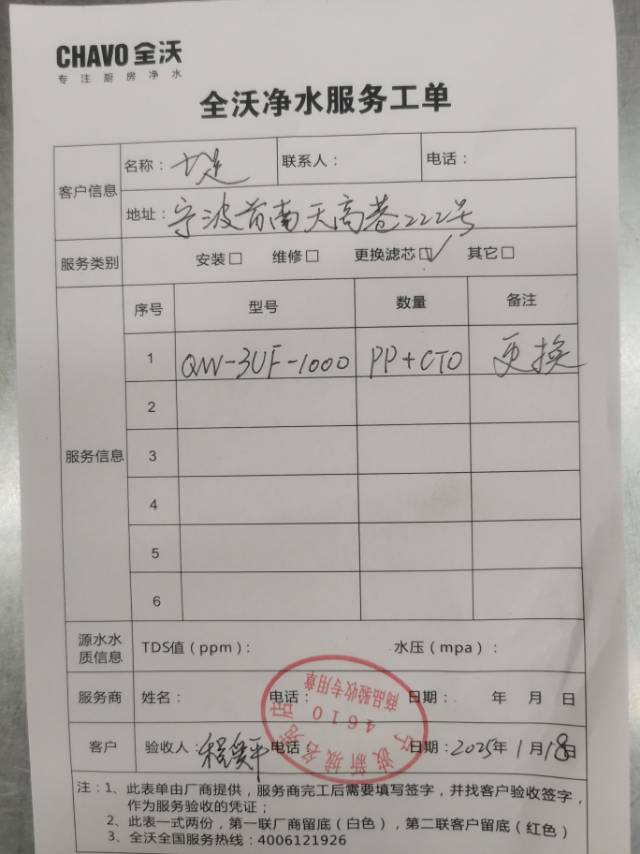 CHAVO 全沃
专注厨房净水
全沃净水服务工单
客户信息
名称：
联系人：
电话：
地址：宁波首南天高巷222号
服务类别
安装□ 维修□ 更换滤芯□✓ 其它□
服务信息
序号 型号 数量 备注
1 QW-3UF-1000 PP+CTO 更换
2
3
4
5
6
源水水质信息
TDS值（ppm）： 水压（mpa）：
服务商 姓名： 电话： 日期： 年 月 日
客户 验收人： 电话： 日期：2025年1月18日
商品验收专用章
4610
注：1、此表单由厂商提供，服务商完工后需要填写签字，并找客户验收签字，
作为服务验收的凭证；
2、此表一式两份，第一联厂商留底（白色），第二联客户留底（红色）
3、全沃全国服务热线：4006121926